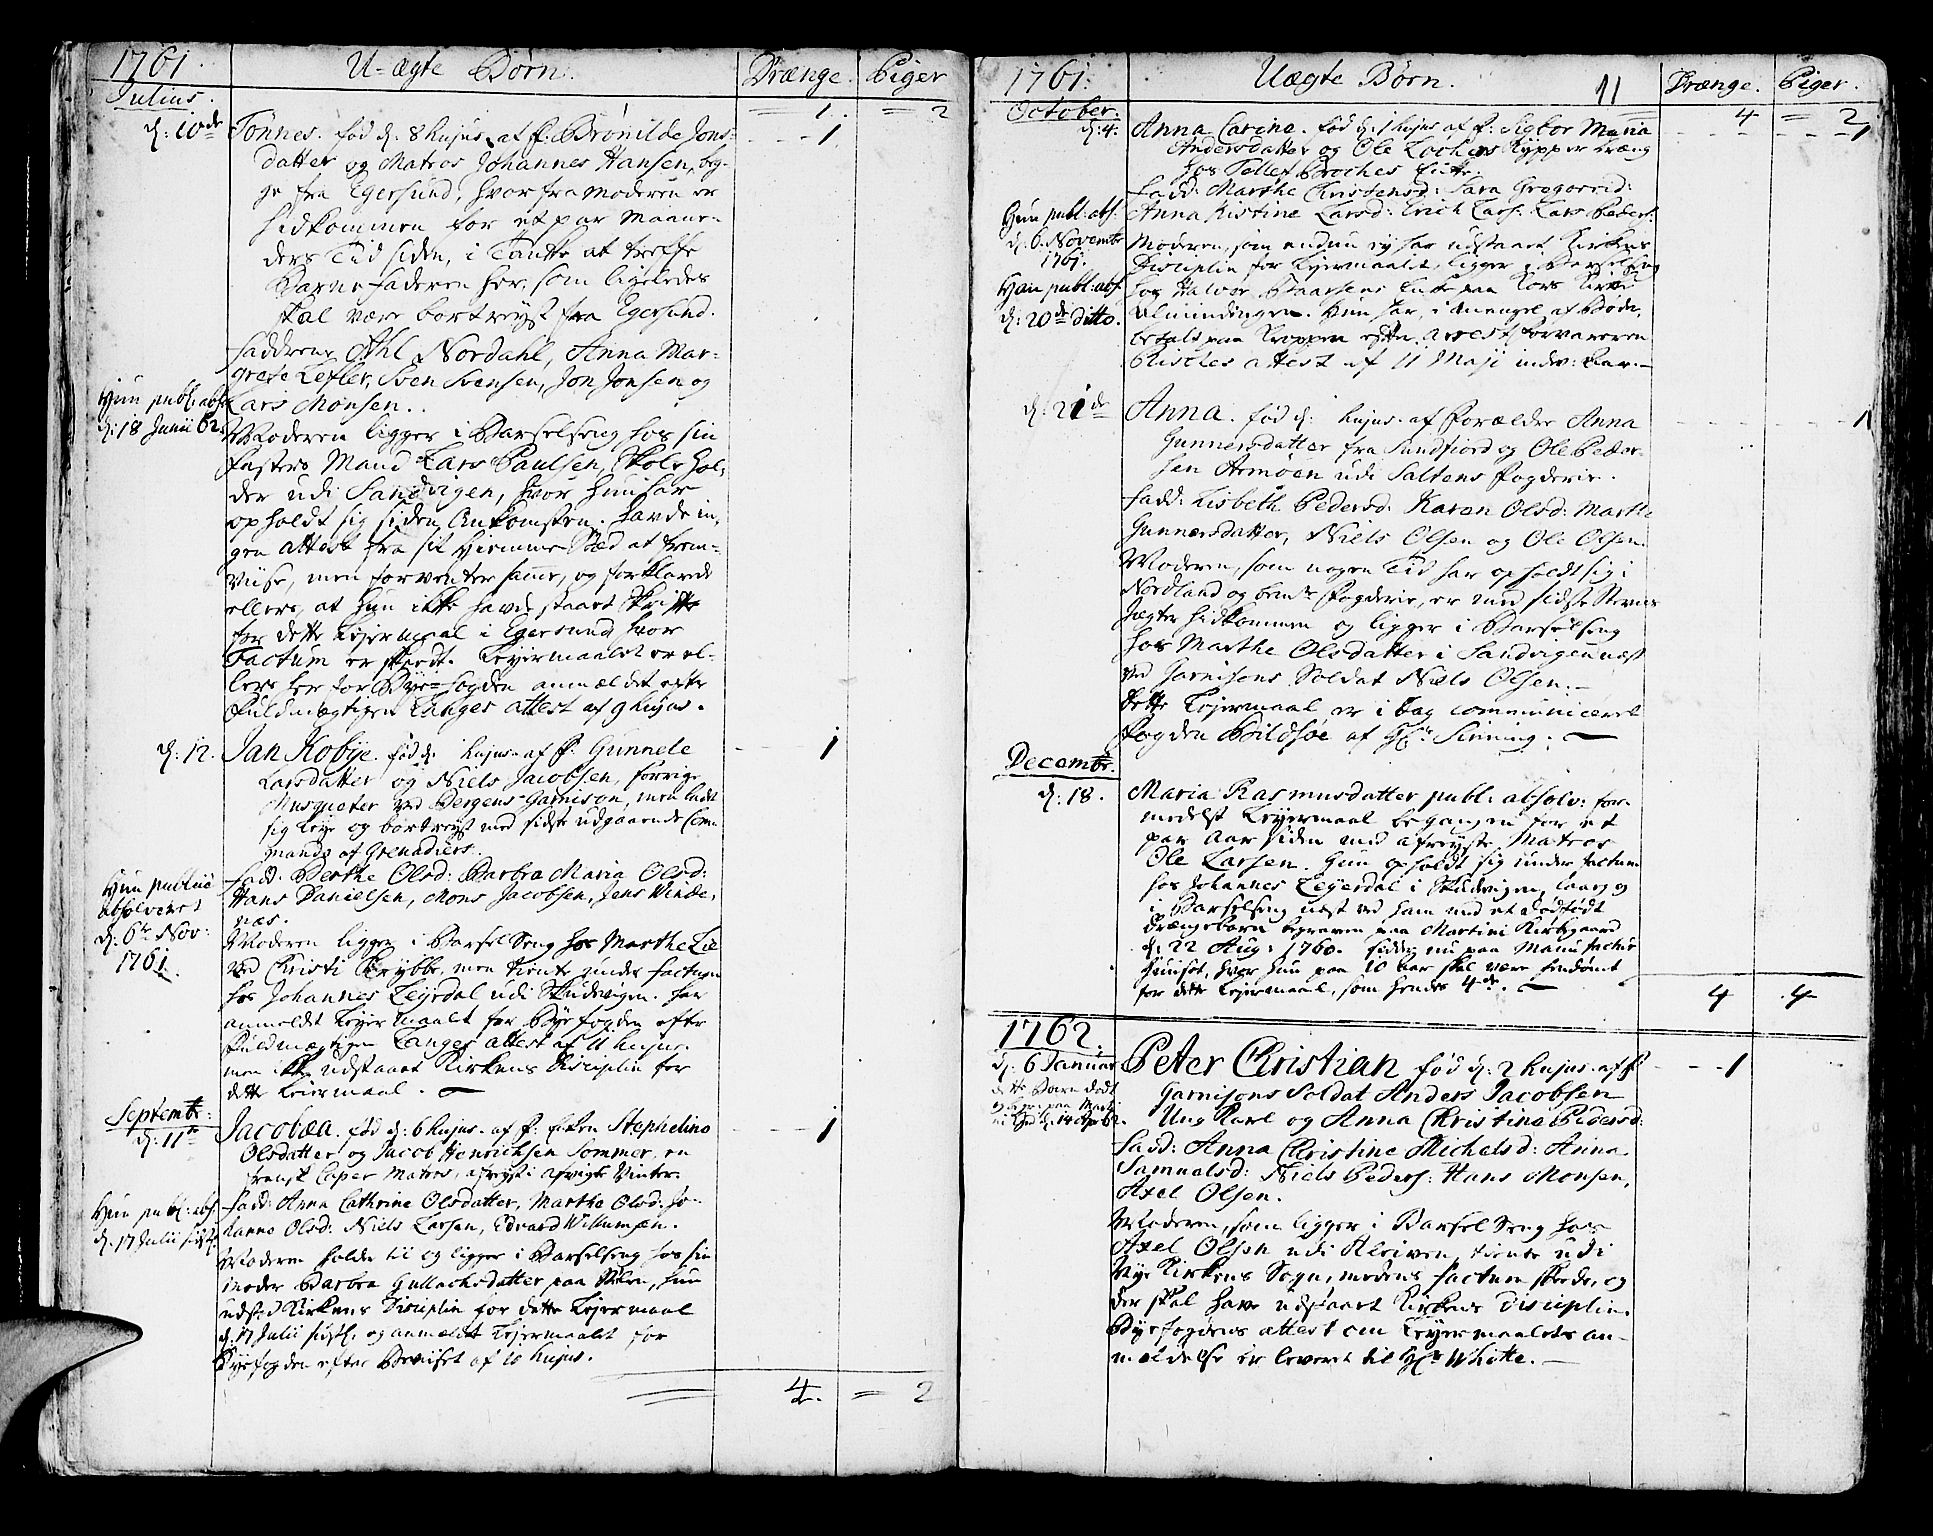 1761. U-ægte Børn. Drænge. Piger
Julius.
1. = 2
d: 10de Tönnes. fød d. 8 hujus. af F. Brönilde Jons- 1
datter og Matros Johannes Hansen, beg-
ge fra Egersund, hvorfra Moderen er
hidkommen for et par Maane-
ders Tid siden, i Tanke at treffe
Barnefaderen her, som ligeledes
skal være bortreyst fra Egersund.
Faddrene Ahl Nordahl, Anna Mar-
grete Lefler, Sven Svensen, Jon Jonsen og
Lars Monsen.
Hun publ: abs:
d: 18 Junii 62.
Moderen ligger i Barselseng hos sin
Fasters Mand Lars Paulsen, Skole hol-
der udi Sandvigen, hvor hun har
opholdt sig siden Ankomsten. Havde in-
gen attest fra sit Hiemme Stæd at frem-
viise, men forventer samme, og forklarede
ellers, at hun ikke havde staaet Skrifte
for dette Leyermaal i Egersund, hvor
Factum er skeedt. Leyermaalet er el-
lers her for Bye-fogden anmældet efter
Fuldmægtigen Langes attest af 9 hujus.
d: 12. Jan Kobye. fød d: hujus. af F. Gunnele 1
Larsdatter og Niels Jacobsen, forrige
Musqueter ved Bergens Garnison, men ladet
sig leye og bortreyst med sidste udgaaende Com-
mando af Grenadiers.
Fadd: Berthe Olsd: Barbra Maria Olsd:
Hans Danielsen, Mons Jacobsen, Jens Winde-
næs.
Hun publice
absolveret
d: 6te Nov:
1761.
Moderen ligger i Barsel Seng hos Marthe
ved Christi Krybbe, men tiente under factum
hos Johannes Leyrdal udi Skudevigen. har
anmeldet Leyermaalet for Byefogden efter
Fuldmægtigen Langes attest af 11 hujus.
men ikke udstaaet Kirkens Disciplin for
dette Leiermaal.
Septembr:
d: 11te Jacobæa. fød d: 6 hujus. af F. Enken Stephelina 1
Olsdatter og Jacob Henrichsen Sommer, en
fransk Caper Matros, afreyst i afvigte Vinter.
Hun publ: abs:
d. 17 Julii sidstl:
Fadd: Anna Cathrine Olsdatter, Marthe Olsd: Jo-
hanne Olsd: Niels Larsen, Edvard Willumsen.
Moderen holder til og ligger i Barselseng hos sin
Moder Barbra Gullachsdatter paa Stølen, hun
udstod Kirkens Disciplin for dette Leyermaal
d. 17 Julii sidstl. og anmældt Leyermaalet for
Byefogden efter Beviiset af 10 hujus.
4. = 2
1761. Uægte Børn. 11 Drænge. Piger.
October. 4 = 2
d: 4. Anna Carine. fød d: 1 hujus af F: Sigbor Maria 1
Andersdatter og Ole Kypper Dræng
hos Tellef Broches Enke.
Fadd: Marthe Christensd: Sara Gregorrid:
Anna Kistine Larsd: Erich Lars: Lars Peders:
Hun publ: abs:
d: 6. Novembr
1761.
Han publ: abs.
d: 20de ditto.
Moderen, som endnu ey har udstaaet Kirkens
Disciplin for Leyermaalet, ligger i Barselseng
hos Halvor Baarsens Enke paa Kors Kirke
Almindingen. Hun har, i mangel af Bøder,
betalt paa Kroppen efter arrest forvareren
Risches attest af 11 Maji indev: Aar.
d: 21de Anna. fød d: hujus. af Forælder Anna 1
Gunnersdatter fra Sundfiord og Ole Peder-
sen Armoen udi Saltens Fogderie.
Fadd: Lisbeth Pedersd: Karen Olsd: Marthe
Gunnersdatter, Niels Olsen og Ole Olsen.
Moderen, som nogen Tid har opholdt sig i
Nordland og bemte Fogderie, er med sidste Stevne
Jægter hidkommen og ligger i Barselseng
hos Marthe Olsdatter i Sandvigen næst
ved Garnisons Soldat Niels Olsen.
Dette Leyermaal er i dag communiceret
Fogden Bildsøe af Hr: Sinning.
Decembr.
d: 18. Maria Rasmusdatter publ: absolv: for-
medelst Leyermaal begangen for et
par Aar siden med afreyste Matros
Ole Larsen. Hun opholdt sig under factum
hos Johannes Leyerdal i Skudevigen, laae og
i Barselseng næst ved ham med et dødfødt
drængebarn begraven paa Martini Kirkegaard
d: 22 Aug: 1760. Sidder nu paa Manufactur
Huuset, hvor hun paa 10 Aar skal være fordømt
for dette Leiermaal, som hendes 4de.
4 4
1762.
d: 6 Januar Peter Christian fød d: 2 hujus. af F 1
Garnisons Soldat Anders Jacobsen
Ung Karl og Anna Christine Pedersd:
dette Barn dødt
Fadd: Anna Christine Michelsd: Anna
Samuelsd: Niels Peders: Hans Monsen,
Axel Olsen.
Moderen, som ligger i Barsel Seng hos
Axel Olsen udi Kleiven, tiente udi
Nye Kirkens Sogn, medens factum skeede, og
der skal have udstaaet Kirkens Disciplin.
Byefogdens attest om Leyermaalets an-
meldelse er leveret til Hr: Whitte.